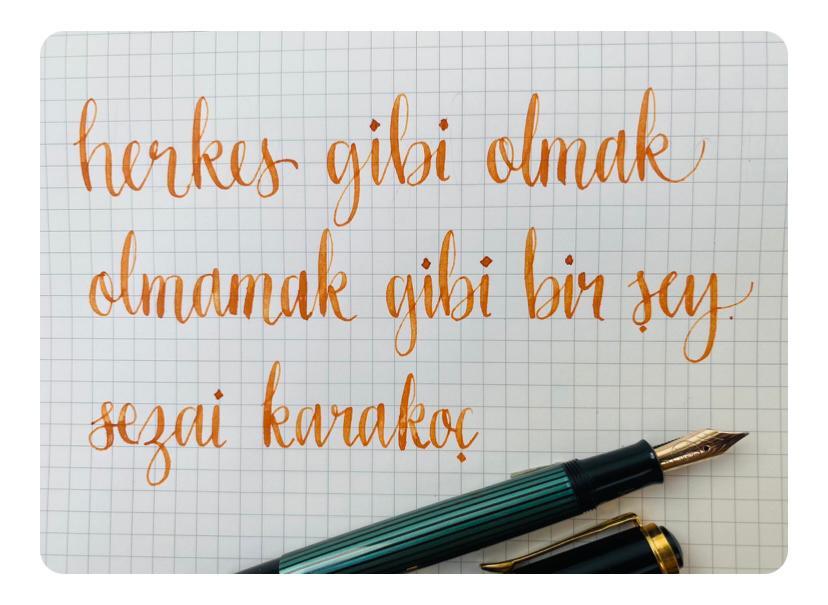 herkes gibi olmak
olmamak gibi bir şey.
sezai karakoç